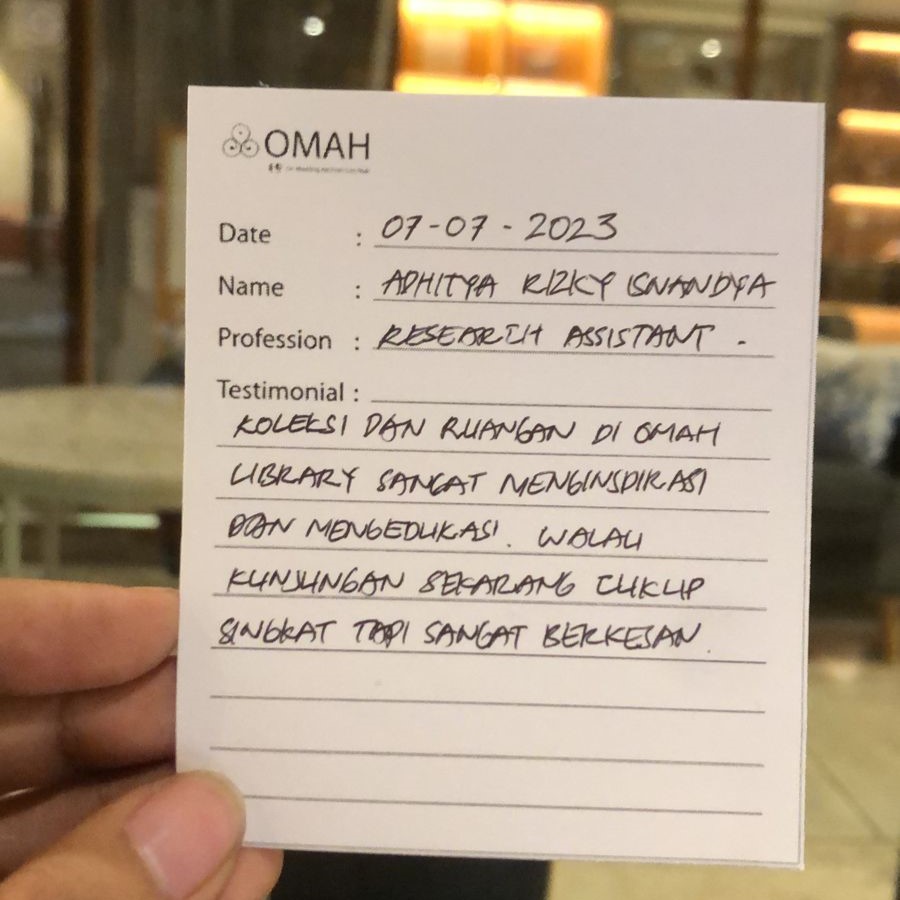 OMAH
Date : 07-07-2023
Name : ADHITYA RIZKY ISNANDYA
Profession : RESEARCH ASSISTANT.
Testimonial :
KOLEKSI DAN RUANGAN DI OMAH
LIBRARY SANGAT MENGINSPIRASI
DAN MENGEDUKASI. WALAU
KUNJUNGAN SEKARANG CUKUP
SINGKAT TAPI SANGAT BERKESAN.